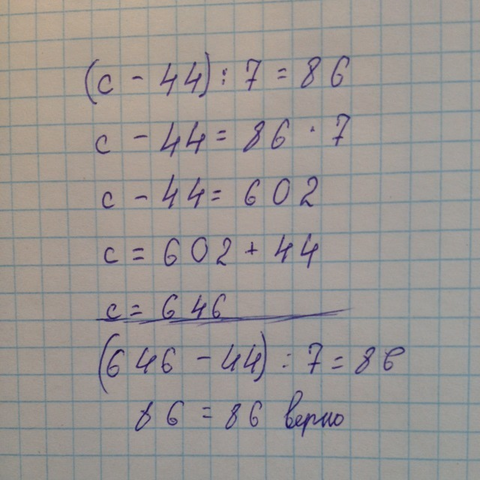 (c - 44) : 7 = 86
c - 44 = 86 · 7
c - 44 = 602
c = 602 + 44
c = 646
(646 - 44) : 7 = 86
86 = 86 верно